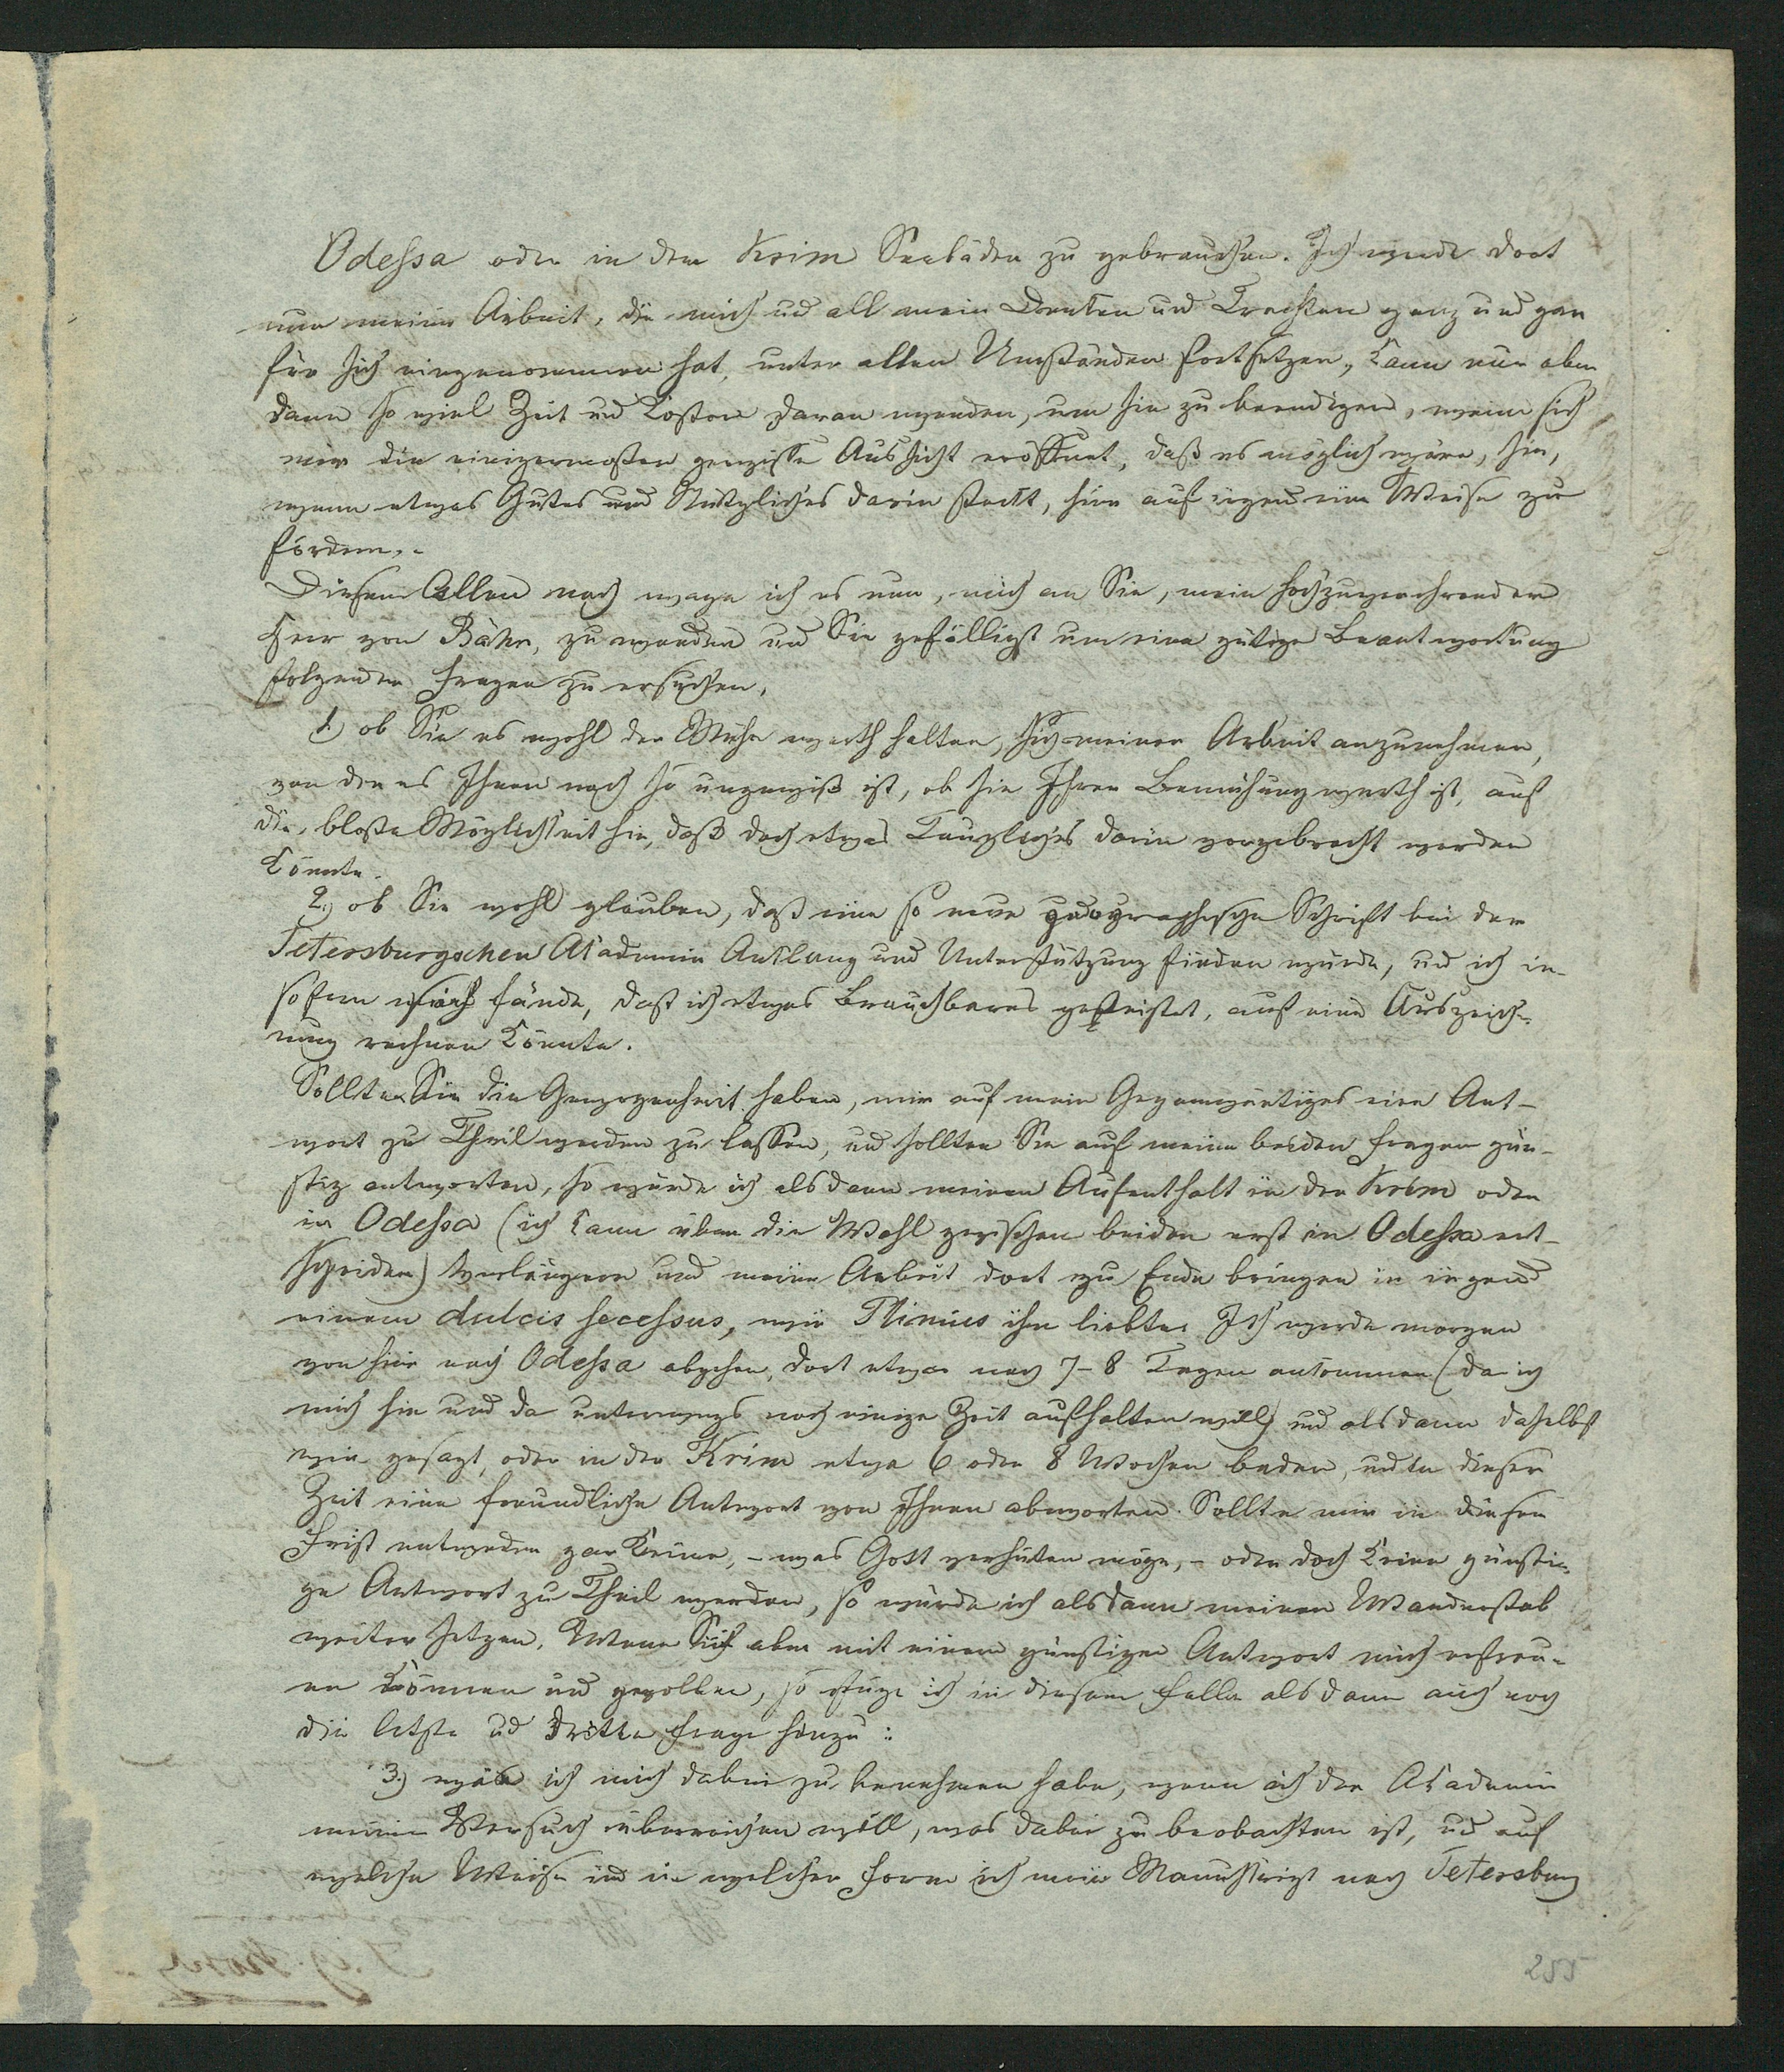 Odessa oder in der Krim Seebäder zu gebrauchen. Ich werde dort
nun meine Arbeit, die mich und all mein Denken und Trachten ganz und gar
für sich eingenommen hat, unter allen Umständen fortsetzen, kann nur aber
dann so viel Zeit und Kosten daran wenden, um sie zu beendigen, wenn sich
mir die einigermaßen gewisse Aussicht eröffnet, daß es möglich wäre, sie,
wenn etwas Gutes und Nützliches darin steckt, hier auf irgend eine Weise zu
fördern.
Diesem Allen nach wage ich es nun, mich an Sie, mein hochzuverehrender
Herr von Bähr, zu wenden und Sie gefälligst um eine gütige Beantwortung
folgender Fragen zu ersuchen.
1.) ob Sie es wohl der Mühe werth halten, sich meiner Arbeit anzunehmen,
von der es Ihnen noch so ungewiß ist, ob sie Ihrer Bemühung werth ist, auf
die bloße Möglichkeit hin, daß doch etwas Taugliches darin vorgebracht werden
könnte.
2.) ob Sie wohl glauben, daß eine so neue geographische Schrift bei der
Petersburgschen Akademie Anklang und Unterstützung finden würde, und ich in-
sofern fände, daß ich etwas Brauchbares geleistet, auf eine Auszeich-
nung rechnen könnte.
Sollten Sie die Gewogenheit haben, mir auf mein Gegenwärtiges eine Ant-
wort zu Theil werden zu lassen, und sollten Sie auf meine beiden Fragen gün-
stig antworten, so würde ich alsdann meinen Aufenthalt in der Krim oder
in Odessa (ich kann über die Wahl zwischen beiden erst in Odessa ent-
scheiden) verlängern und meine Arbeit dort zu Ende bringen in irgend
einem dulcis secessus, wie Plinius ihn liebte. Ich werde morgen
von hier nach Odessa abgehen, dort etwa nach 7-8 Tagen ankommen (da ich
mich hie und da unterwegs noch einige Zeit aufhalten will) und alsdann daselbst
wie gesagt, oder in der Krim etwa 6 oder 8 Wochen baden, und in dieser
Zeit eine freundliche Antwort von Ihnen abwarten. Sollte mir in dieser
Frist entweder gar keine, - was Gott verhüten möge, - oder doch keine günsti-
ge Antwort zu Theil werden, so würde ich alsdann meinen Wanderstab
weiter setzen. Wenn Sie aber mit einer günstigen Antwort mich erfreu-
en können und wollen, so füge ich in diesem Falle alsdann auch noch
die letzte und dritte Frage hinzu:
3.) wie ich mich dabei zu benehmen habe, wenn ich der Akademie
meinen Versuch überreichen will, was dabei zu beobachten ist, und auf
welche Weise und in welcher Form ich mein Manuskript nach Petersburg
255